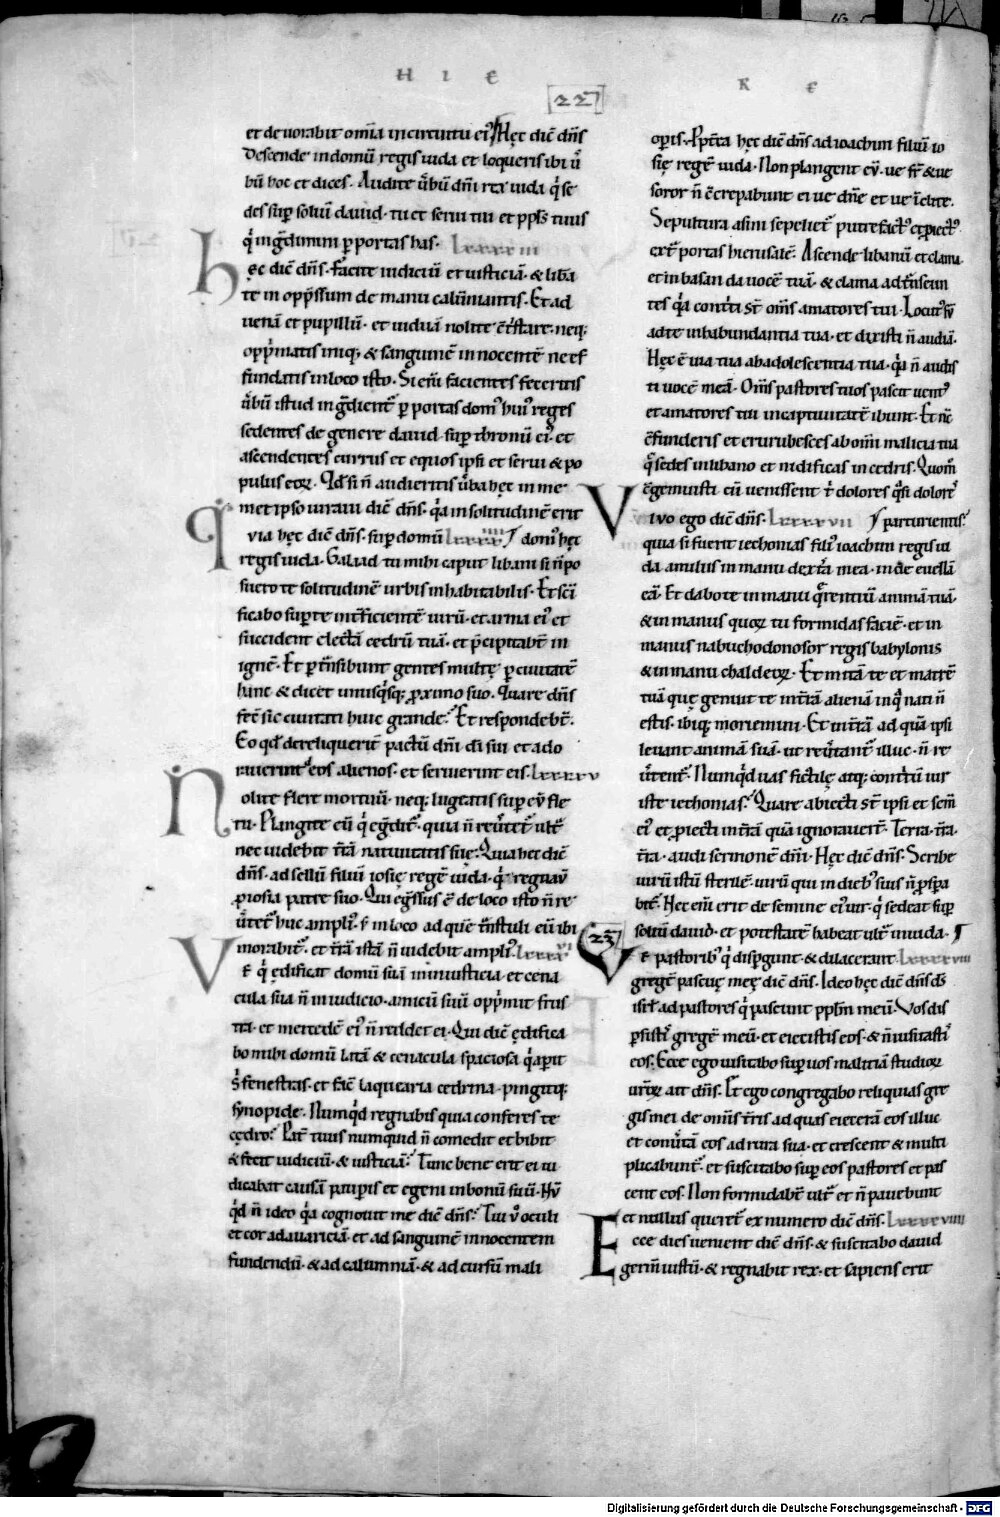 H I E R E
22
et deuorabit om̄ia incircuitu ei᾽ Hęc dic̄ dn̄s
Descende indomū regis iuda et loqueris ibi ū
bū hoc et dices. Audite ūbū dn̄i rex iuda q̇ se
des suꝑ soliū dauid. tu et serui tui et ppl̄s tuus
q̇ ingᷓdimini ꝑ portas has. Lxxxxiii
hęc dic̄ dn̄s. facite iudiciū et iusticiā. & libᷓa
te ui opp̄ssum de manu calūniantis. Et ad
uenā et pupillū. et uiduā nolite c̄tristare. neq;
opp̄matis iniq; & sanguinē innocentē ne ef
fundatis inloco isto. Si eni facientes feceritis
ūbū istud ingᷓdient᷑ ꝑ portas dom᾽ hui᾽ reges
sedentes de genere dauid. suꝑ thronū ei᾽ et
ascendentes currus et equos ipsi et serui & po
pulus eoꝝ. Qd̄ si n̄ audieritis ūba hęc in me
met ipso iuraui dic̄ dn̄s. q̇a insolitudinē erit
quia hęc dic̄ dn̄s. suꝑ domū Lxxxxiiii dom᾽ hęc
regis iuda. Galaad tu mihi caput libani si n̄ po
suero te solitudinē urbis inhabitabilis. Et sc̄i
ficabo suꝑ te int̄ficientē uirū. et arma ei᾽ et
succident electā cedrū tuā. et p̄cipitabt̄ in
ignē. Et ꝑt̄nsibunt gentes multę ꝑ ciuitatē
hanc & dicet unusq̇sq; ꝓximo suo. Quare dn̄s
fec̄ sic ciuitati huic grande. Et respondebt̄.
Eo qd̄ dereliquerit̄ pactū dn̄i dī sui et ado
rauerint d̄eos alienos. et seruierint eis. Lxxxxv
Nolite flere mortuū. neq; lugeatis suꝑ eū fle
tu. Plangite eū q̇ eg̅dit᷑. quia n̄ reūtet᷑ ult᷑
nec uidebit t̄rā natiuitatis suę. Quia hec dic̄
dn̄s. ad sellū filiū iosię regē iuda. q̇ regnau᷑
ꝓ iosia patre suo. Qui egs̄sus ē de loco isto n̄ re
ūtet᷑ huc ampli᾽. s; in loco ad quē t̄nstuli eū ibi
morabit᷑. et t̄rā istā n̄ uidebit ampli᾽. Lxxxxvi
Vę q̇ ędificat domū suā in iniusticia et cena
cula sua n̄ in iudicio. amicū suū opp̄mit frus
tra. et mercedē ei᾽ n̄ reddet ei. Qui dic̄ ędifica
bo mihi domū latā & cenacula spaciosa q̇ aꝑit
s̄ fenestras. et fac̄ laquearia cedrina. pingitq;
synopide. Numq̇d regnabis quia conferes te
cędro. Pat᷑ tuus numquid n̄ comedit et bibit
& fecit iudiciū. & iusticiā. Tunc bene erit ei iu
dicabat causā pauꝑis et egeni inbonū suū. Nū
q̇d n̄ ideo q̇a cognouit me dic̄ dn̄s. Tui v̊ oculi
et cor adauariciā. et ad sanguinē innocentem
fundendū. & ad calumniā. & ad cursū mali
oꝑis. Ppt̄ea hęc dic̄ dn̄s ad ioachim filiū io
się regē iuda. Non plangent eū. ue fr̄ & ue
soror n̄ c̄crepabunt ei ue dn̄e. et ue īclite.
Sepultura asini sepeliet᷑ putrefact᾽ et ꝓiect᾽
ext᷑ portas hierusalē. Ascende libanū et clama
et in basan da uocē tuā. & clama ad t̄nseun
tes q̇a contrī st̄ om̄s amatores tui. Locut᾽ sū
ad te inhabundantia tua. et dixisti n̄ audiā.
Hęc ē uia tua abadolescentia tua. q̇a n̄ audis
ti uocē meā. Om̄s pastores tuos pascit uent᾽
et amatores tui incaptiuitatē ibunt. Et nc̄
c̄funderis et erurubesces abom̄i malicia tua
q̄ sedes inlibano et nidificas in cedris. Quom̄
c̄gemuisti cū uenissent t̄ dolores q̇si dolores
Viuo ego dic̄ dn̄s. Lxxxxvii parturientis.
quia si fuerit iechonias fili᾽ ioachim regis iu
da anulus in manu dext̄a mea. inde euellā
eā. Et dabo te in manu q̄rentiū animā tuā.
& in manus quoꝝ tu formidas faciē. et in
manus nabuchodonosor regis babylonis
& in manu chaldeoꝝ. Et mitā te et matrē
tuā quę genuit te int̄rā alienā inq̇ nati n̄
estis. ibiq; moriemini. Et int̄rā ad quā ipsi
leuant animā suā. ut reūtant᷑ illuc. n̄ re
ūtent᷑. Numq̇d uas fictilę atq; contritū uir
iste iechonias. Quare abiecti st̄ ipsi et sem̄
ei᾽ et ꝓiecti int̄rā quā ignorauert̄. Terra. t̄ra.
t̄ra. audi sermonē dn̄i. Hęc dic̄ dn̄s. Scribe
uirū istū sterilē. uirū qui in dieb᾽ suis n̄ ꝓsꝑa
bit᷑. Nec eni erit de semine ei᾽ uir. q̇ sedeat suꝑ
soliū dauid. et potestatē habeat ult᷑ iniuda. ¶
23
Vę pastorib᾽ q̇ dispgunt & dilacerant Lxxxxviii
gregē pascuę meę dic̄ dn̄s. Ideo hęc dic̄ dn̄s d̄s
isrl̄ ad pastores q̇ pascunt ppl̄m meū. Vos dis
ꝑsistis gregē meū. et eiecistis eos. & n̄ uisitastis
eos. Ecce ego uisitabo suꝑ uos malitiā studioꝝ
ur̄oꝝ ait dn̄s. Et ego congregabo reliquias gre
gis mei de omīs t̄ris ad quas eiecerā eos illuc
et conūtā eos ad rura sua. et crescent & multi
plicabunt᷑. et suscitabo suꝑ eos pastores et pas
cent eos. Non formidabt̄ ult᷑ et n̄ pauebunt
et nullus queret᷑ ex numero dic̄ dn̄s. Lxxxxviiii
Ecce dies uenient dic̄ dn̄s. & suscitabo dauid
germ̄ iustū. & regnabit rex. et sapiens erit
Digitalisierung gefördert durch die Deutsche Forschungsgemeinschaft - DFG